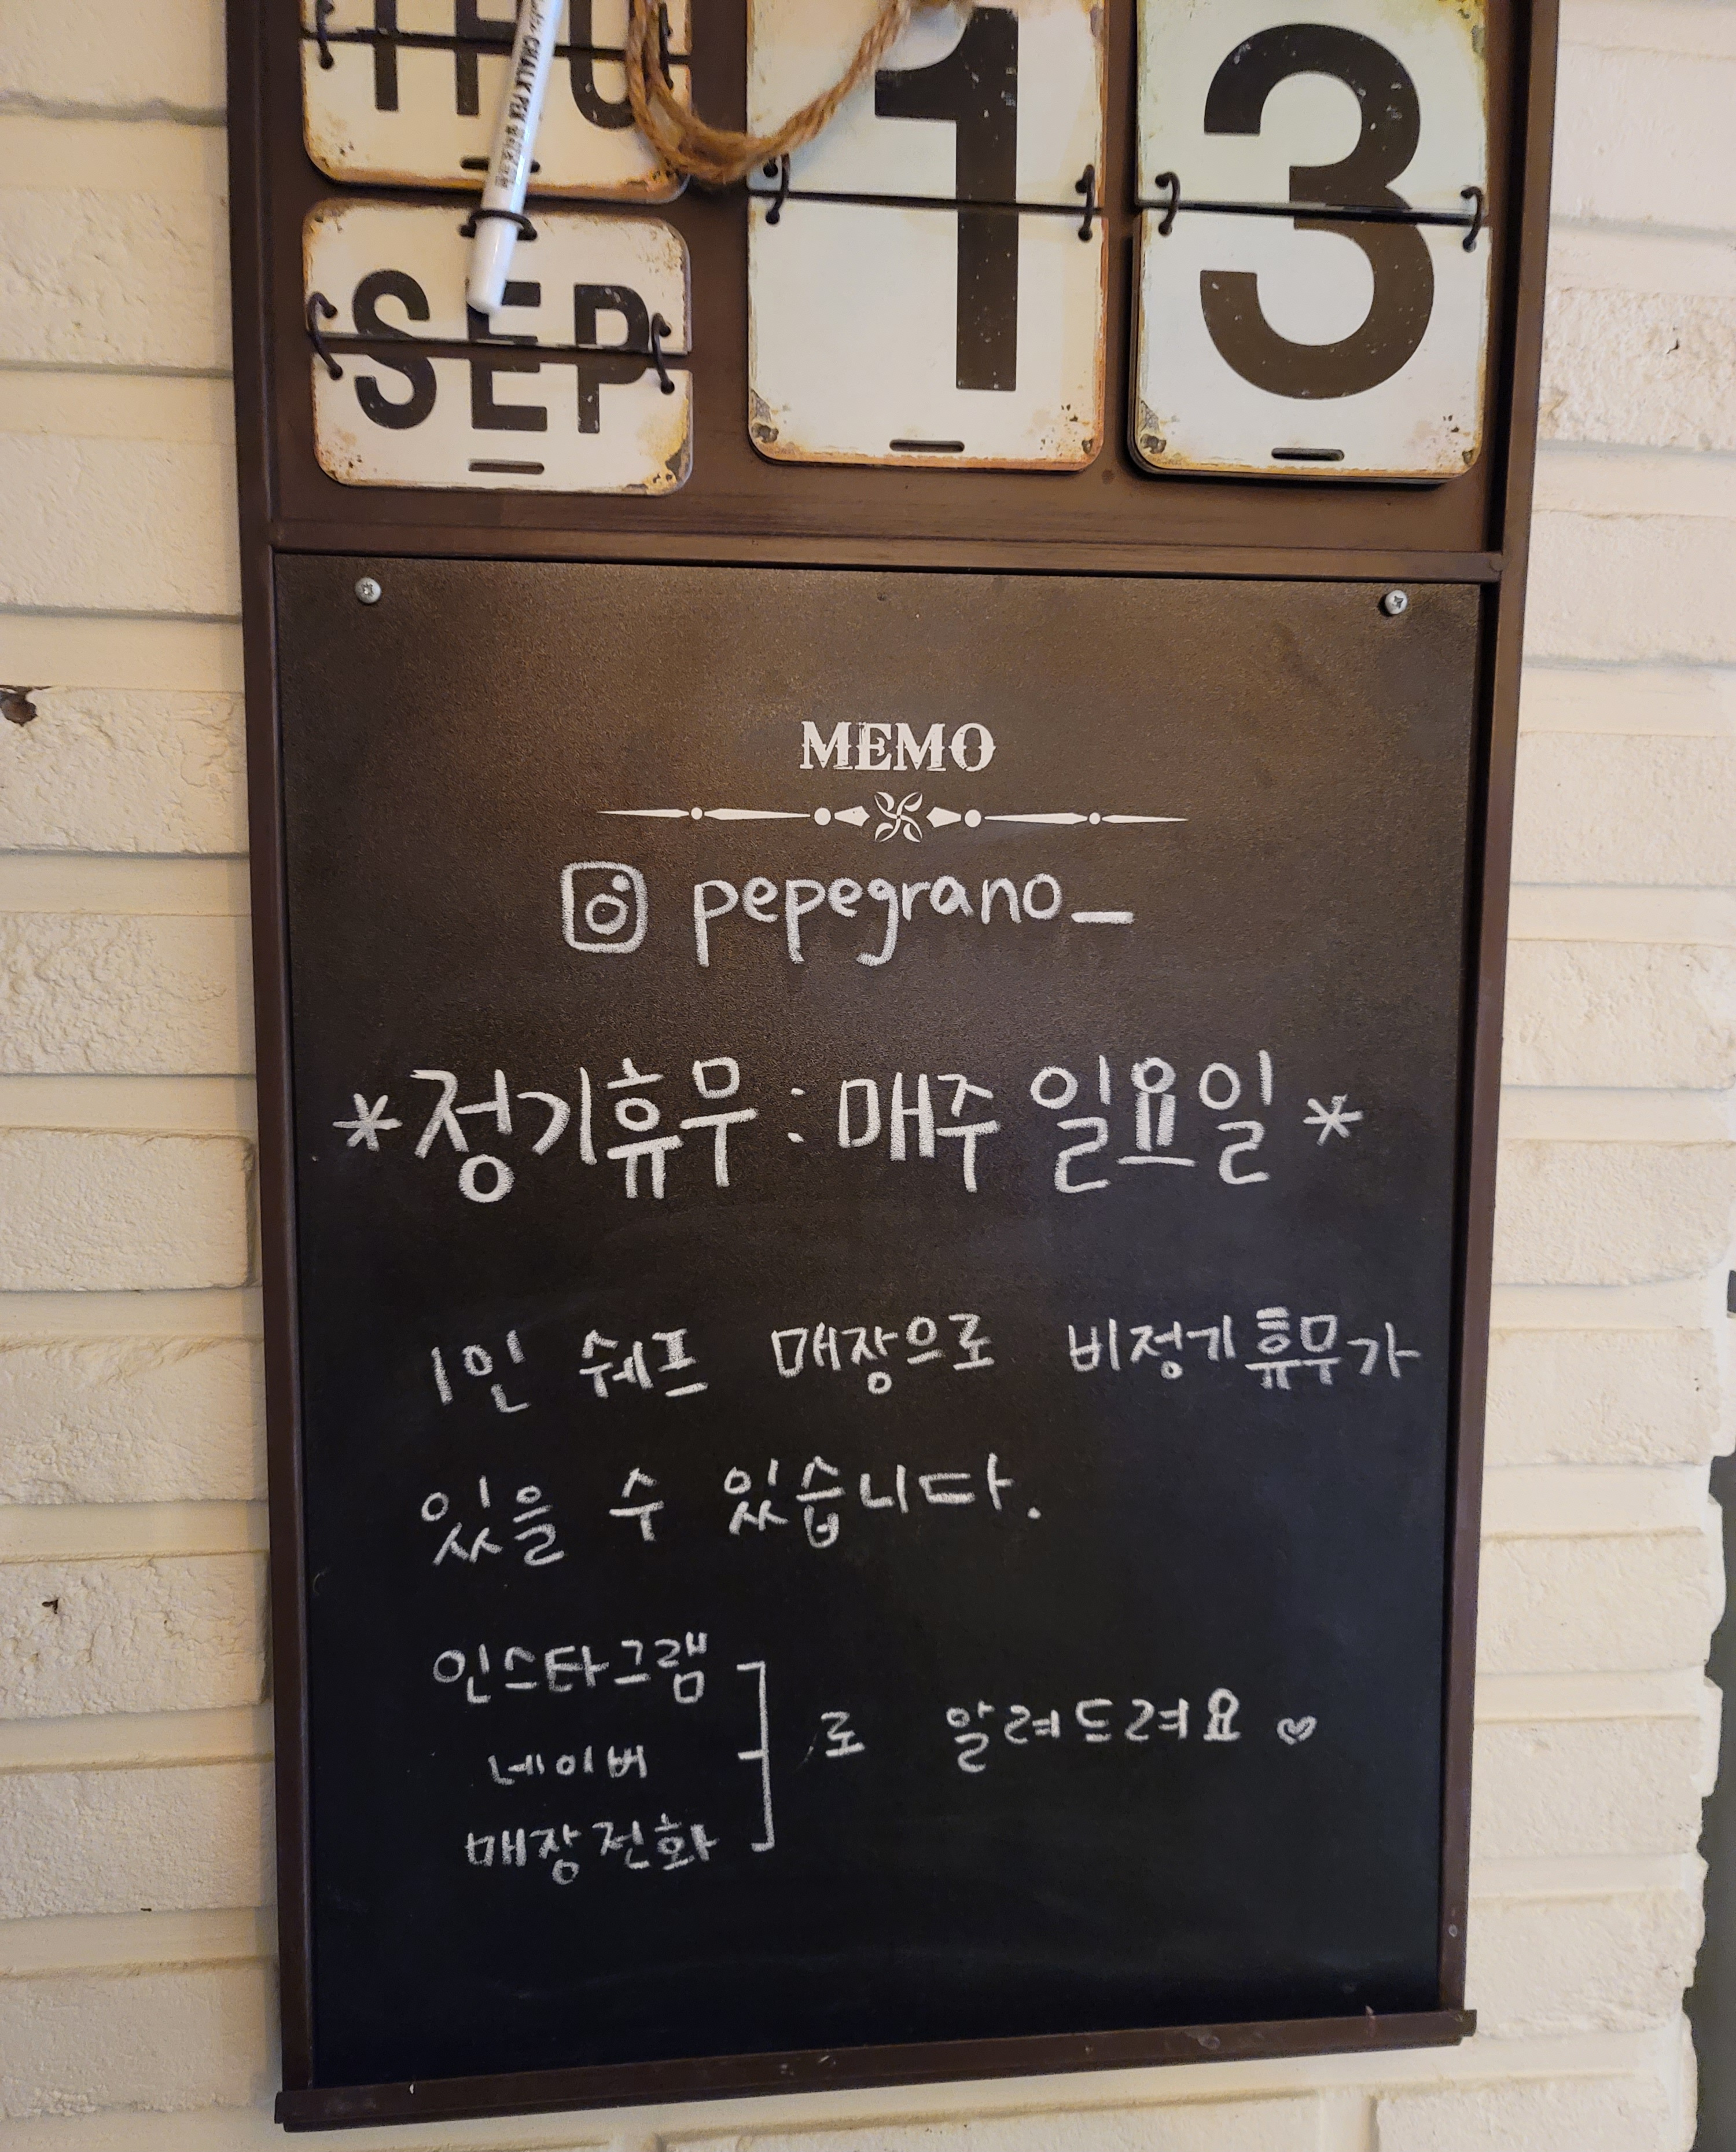 THU
1 3
CHALK PEN
SEP
MEMO
pepegrano_
*정기휴무 : 매주 일요일*
1인 쉐프 매장으로 비정기휴무가
있을 수 있습니다.
인스타그램
네이버
매장전화
로 알려드려요♡